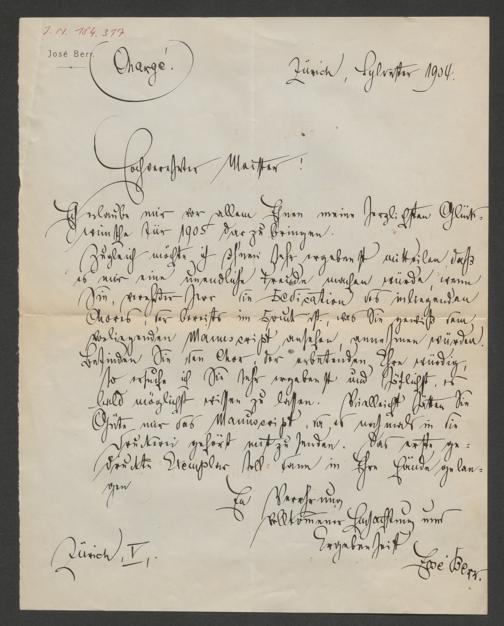 J. N. 184.317
José Berr.
Chargé!
Zürich, Sylvester 1904.
Hochverehrter Meister!
Ich erlaube mir vor allem Ihnen meine herzlichsten Glück-
wünsche für 1905 darzubringen.
Zugleich möchte ich Ihnen sehr ergebenst mitteilen daß
es mir eine unendliche Freude machen würde, wenn
Sie, verehrter Herr die Dedication des inliegenden
Chores, der bereits im Druck ist, was Sie gewiß dem
vorliegenden Manuscript ansehen, annehmen würden.
Befinden Sie den Chor, der erbetenden Ehre würdig,
so ersuche ich Sie sehr ergebenst und höflichst, es
bald möglichst wissen zu lassen. Vielleicht hätten Sie
Güte mir das Manuscript, da es nochmals in die
Druckerei gehört mit zu senden. Das erste ge-
druckte Exemplar soll dann in Ihre Hände gelan-
gen
In Verehrung
vollkommener Hochachtung und
Ergebenheit
José Berr.
Zürich, V,.